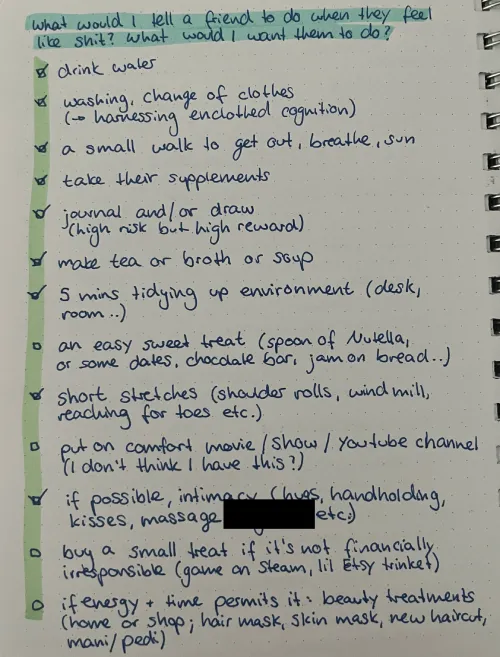 what would I tell a friend to do when they feel
like shit? what would I want them to do?
drink water
washing, change of clothes
(→ harnessing enclothed cognition)
a small walk to get out, breathe, sun
take their supplements
journal and/or draw
(high risk but high reward)
make tea or broth or soup
5 mins tidying up environment (desk,
room..)
an easy sweet treat (spoon of Nutella,
or some dates, chocolate bar, jam on bread..)
short stretches (shoulder rolls, windmill,
reaching for toes etc.)
put on comfort movie/show/youtube channel
(I don't think I have this?)
if possible, intimacy (hugs, handholding,
kisses, massage etc.)
buy a small treat if it's not financially
irresponsible (game on Steam, lil Etsy trinket)
if energy + time permits it: beauty treatments
(home or shop; hair mask, skin mask, new haircut,
mani/pedi)